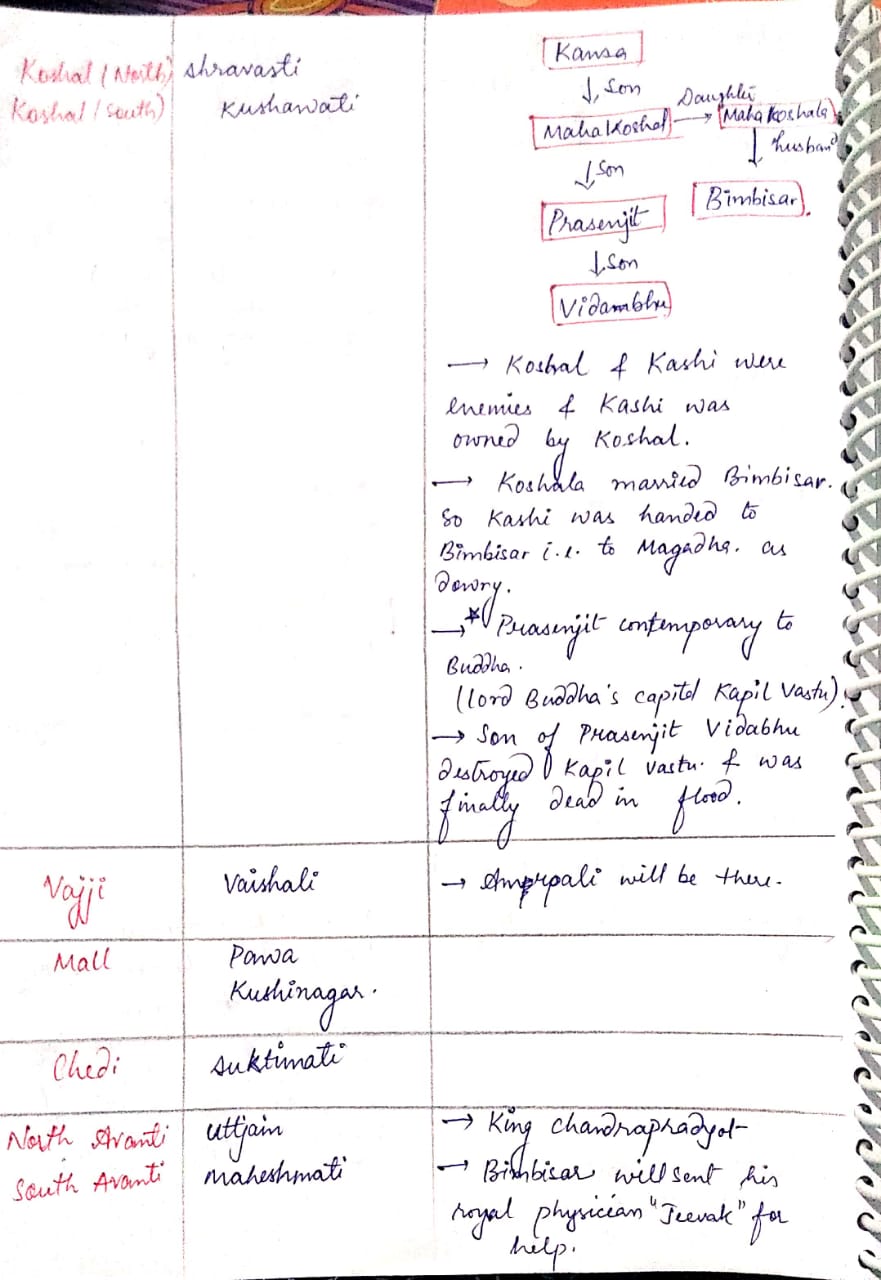 Koshal (North) Shravasti
Koshal (South) Kushawati
Kansa
↓ Son
MahaKoshal → Daughter MahaKoshala
↓ husband
↓ Son
Bimbisar
Prasenjit
↓ Son
Vidambhu
→ Koshal & Kashi were
enemies & Kashi was
owned by Koshal.
→ Koshala married Bimbisar.
So Kashi was handed to
Bimbisar i.e. to Magadha. as
dowry.
→ * Prasenjit contemporary to
Buddha.
(lord Buddha's capitol Kapil Vastu).
→ Son of Prasenjit Vidabhu
destroyed Kapil Vastu. & was
finally dead in flood.
Vajji Vaishali → Amrpali will be there.
Mall Pawa
Kushinagar.
Chedi Suktimati
North Avanti Uttjain → King Chandrapradyot
South Avanti Maheshmati → Bimbisar will sent his
royal physician "Jeevak" for
help.